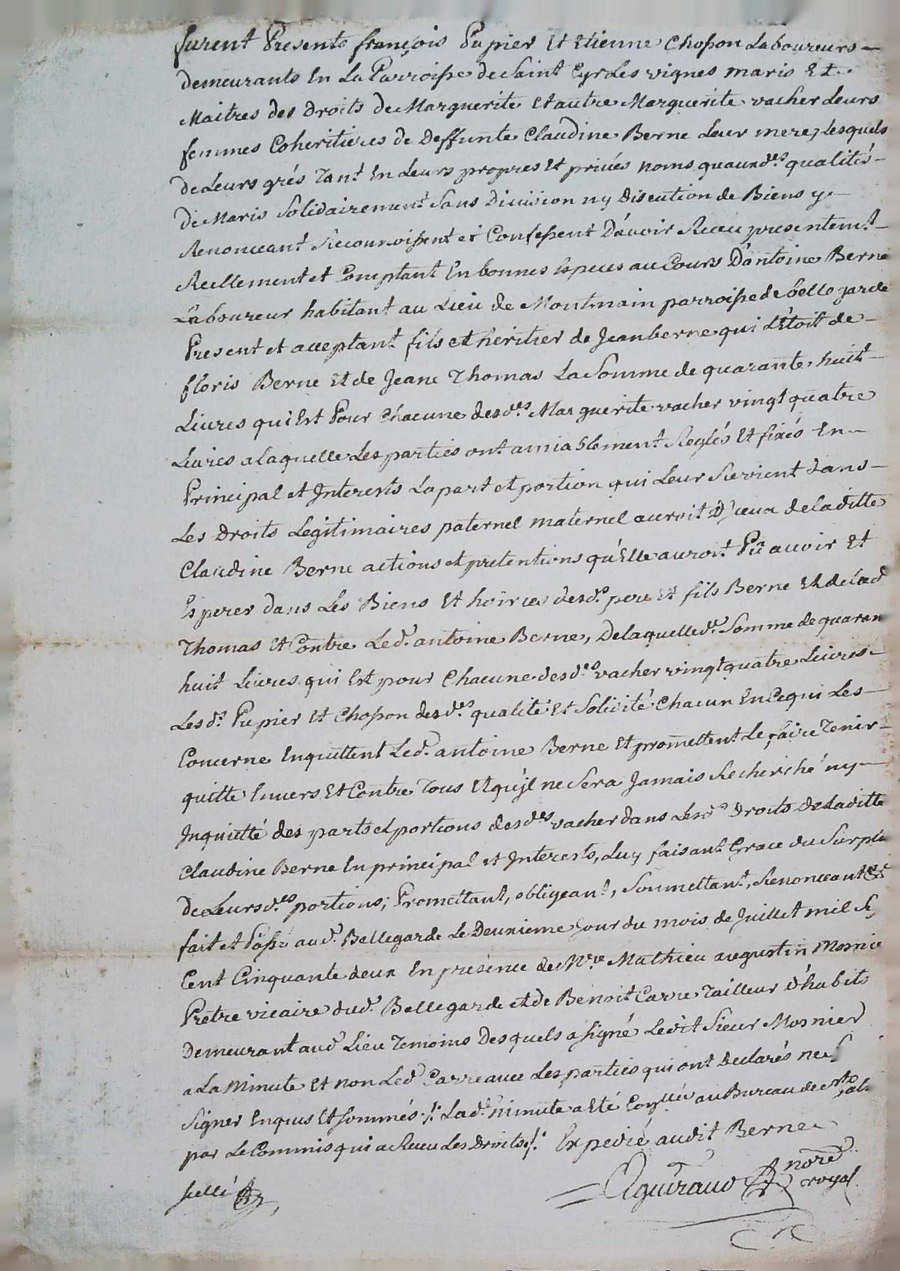 furent Presents françois Pupier Et Etienne Chosson Laboureurs
demeurants En La Parroisse de Saint Cyr Les vignes maris Et
Maitres des Droits de Marguerite Et autre Marguerite vacher Leurs
femmes Coheritieres de Deffunte Claudine Berne Leur mere, Lesquels
de Leurs grés Tant En Leurs propres Et privés noms qu'aux d.es qualités
de Maris Solidairement Sans Division ny Discution de Biens y
Renonceant Reconnoissent et Confessent D'avoir Receu presentem.t
Reellement et Comptant En bonnes Especes au Cours D'antoine Berne
Laboureur habitant au Lieu de Montmain parroisse de bellegarde
Present et acceptant fils et heritier de Jean berne qui L'étoit de
floris Berne Et de Jeane Thomas La Somme de quarante huit
Livres qui Est Pour Chacune des d.es Marguerite vacher vingt quatre
Livres a laquelle Les parties ont amiablement Reglés Et fixés En
Principal et Interests La part et portion qui Leur Revient dans
Les Droits Legitimaires paternel maternel auroit D'iceux de la ditte
Claudine Berne actions et pretentions qu'Elle auroit Pû avoir Et
Esperer dans Les Biens Et hoiries des d.s pere et fils Berne Et de lad
Thomas Et Contre Led.t antoine Berne, De laquelle d.e Somme de quaran
huit Livres qui Est pour Chacune des d.es vacher vingt quatre Livres
Les d.s Pupier Et Chosson des d.es qualité Et Solidité Chacun En Ce qui Les
Concerne Enquittent Led.t antoine Berne Et promettent Le faire Tenir
quitte Envers Et Contre Tous Et qu'il ne Sera Jamais Recherché ny
Inquietté des parts et portions des d.es vacher dans Les d.s Droits De la ditte
Claudine Berne En principal et Interests, Luy faisant Grace du Surplu
de Leurs d.es portions; Promettant, obligeant, Soumettant, Renonceant &c
fait et Passé aud.t Bellegarde Le Deuxieme Jour du mois de Juillet mil Se
Cent Cinquante deux En presence de M.re Mathieu augustin Mosnie
Prêtre vicaire dud.t Bellegarde et de Benoit Carre Tailleur d'habits
Demeurant aud.t Lieu Temoins Desquels a Signé Ledit Sieur Mosnier
a La Minute Et non Led.t Carre avec Les parties qui ont Declarés ne S
Signer Enquis Et Sommés ./. La d.e minute a Eté au Bureau de
par Le Commis qui a Receu Les Droits ./. Expedié audit Berne
Scellé
Aguiraud nore
royal